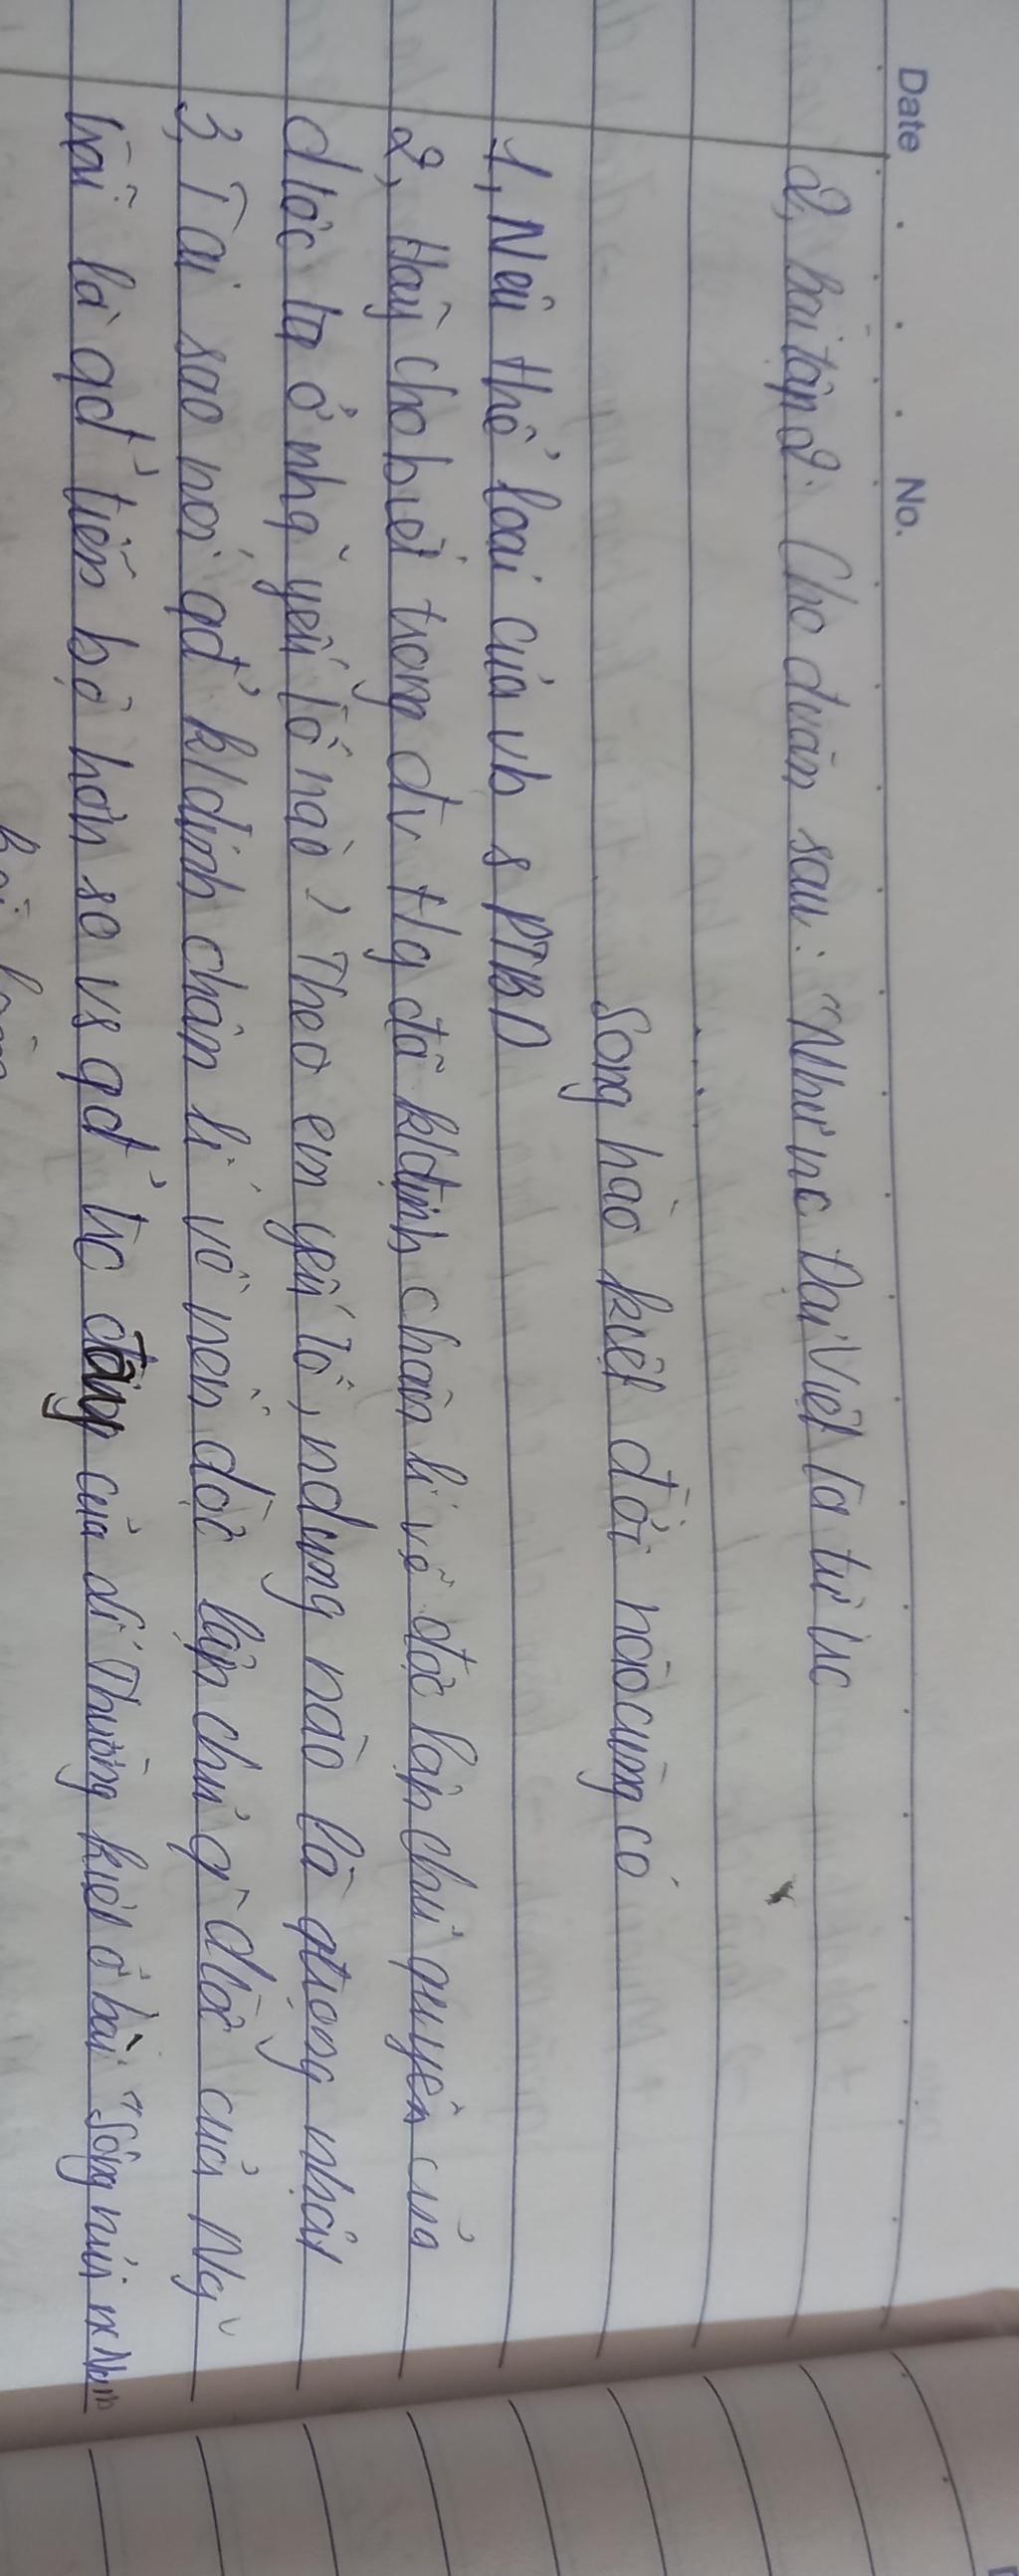 Date No.
2, bài tập 2: Cho đvăn sau: "Như nc Đại Việt ta từ trc
........
Song hào kiệt đời nào cũng có
1, Nêu thể loại của vb s PTBĐ
2, Hãy cho biết trong đv t/g đã k/định chân lí về độc lập chủ quyền của
đ/ớc ta ở nhg~ yếu tố nào? Theo em yếu tố, ndung nào là qtrọng nhất
3, Tại sao nói qđ' k/định chân lí về nền độc lập chủ q` đ/ớc của Ng~
trãi là qđ' tiến bộ hơn so vs qđ' trc đây của Lí Thường kiệt ở bài "Sông núi nc Nam